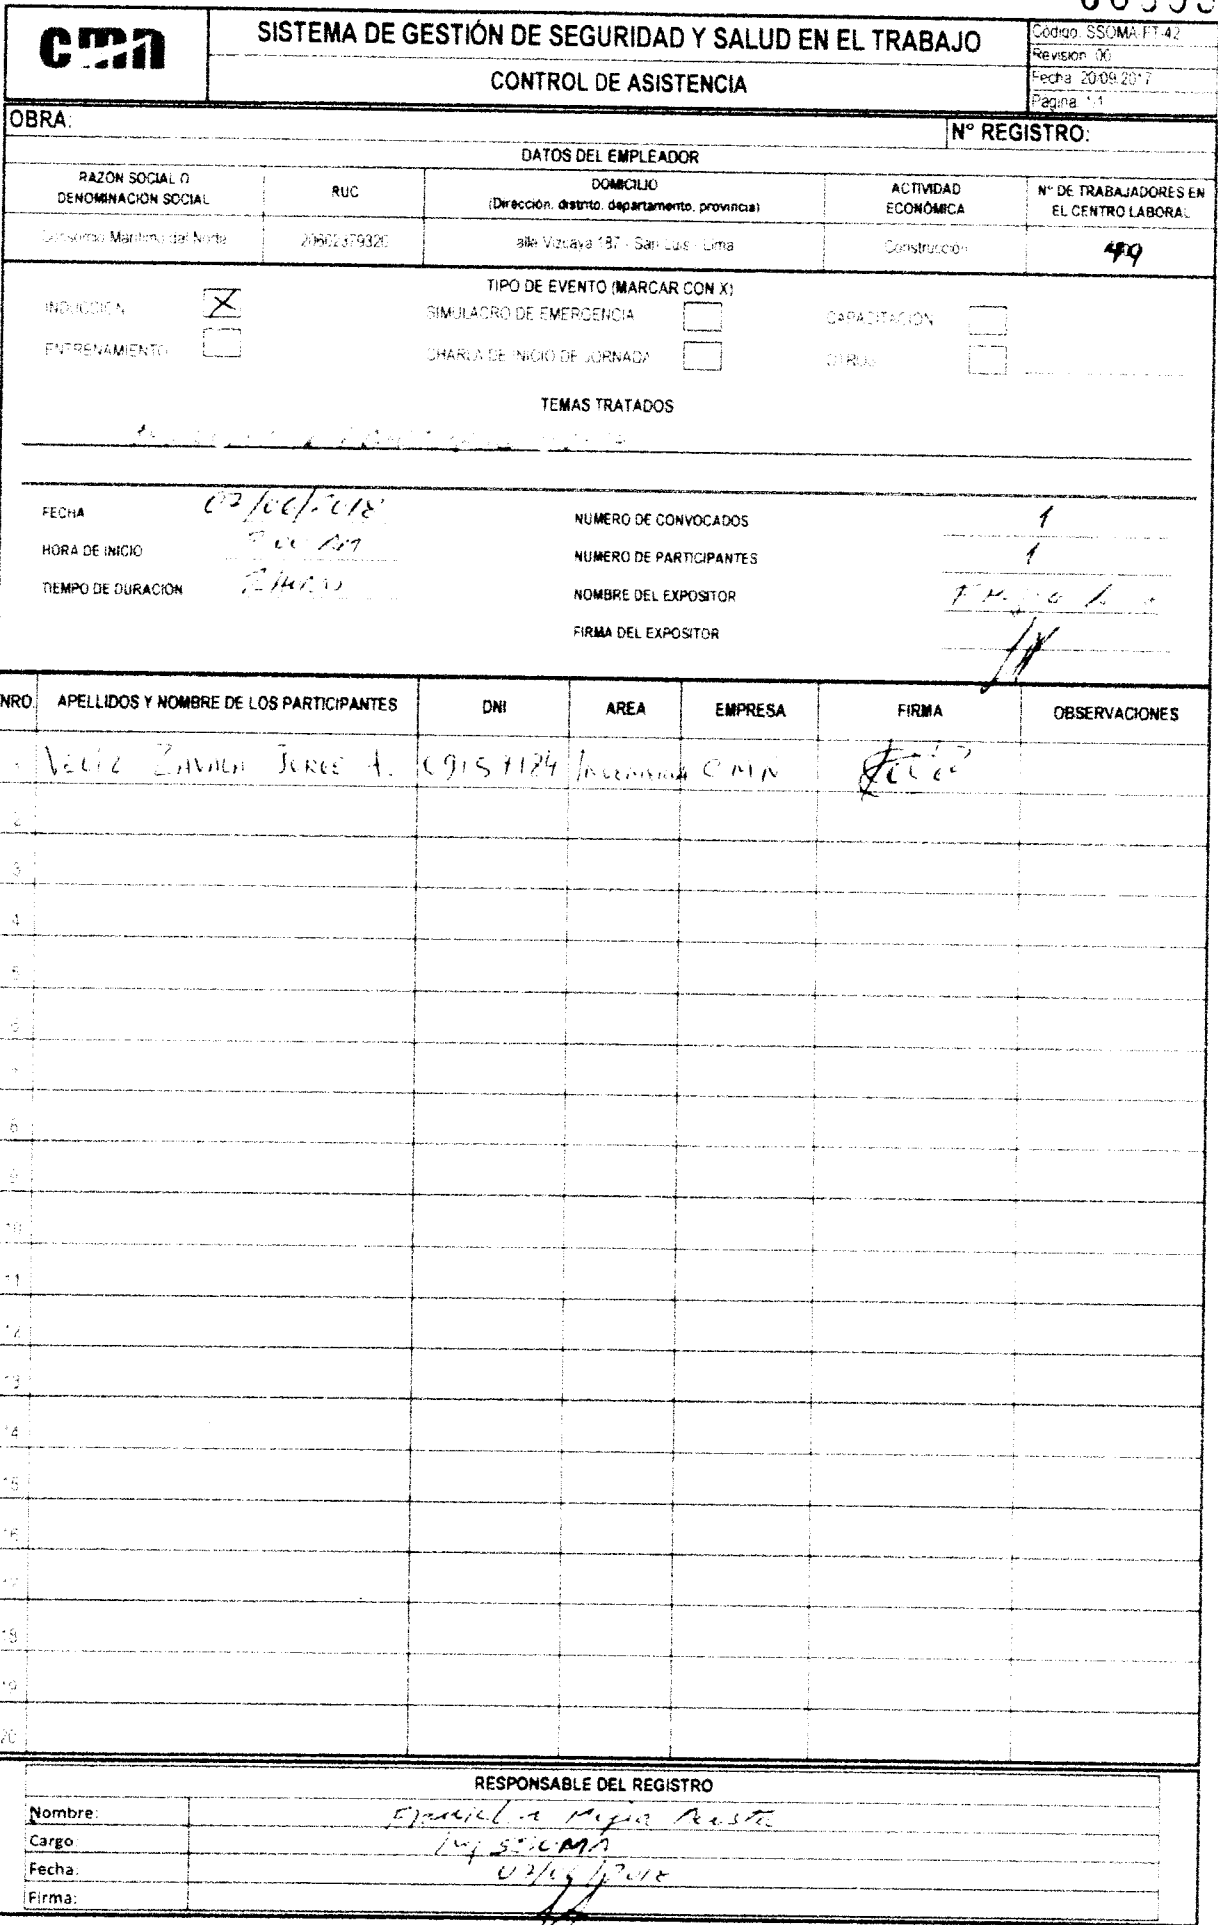 cmn
SISTEMA DE GESTIÓN DE SEGURIDAD Y SALUD EN EL TRABAJO
CONTROL DE ASISTENCIA
Código: SSOMA-FT-42
Revision: 00
Fecha: 20.09.2017
Pagina: 1/1
OBRA:
N° REGISTRO:
DATOS DEL EMPLEADOR
RAZON SOCIAL O DENOMINACION SOCIAL
RUC
DOMICILIO (Dirección, distrito, departamento, provincia)
ACTIVIDAD ECONÓMICA
N° DE TRABAJADORES EN EL CENTRO LABORAL
Consorcio Maritimo del Norte
20602379320
alle Vizcaya 187 - San Luis - Lima
Construcción
49
TIPO DE EVENTO (MARCAR CON X)
INDUCCION X
SIMULACRO DE EMERGENCIA
CAPACITACION
ENTRENAMIENTO
CHARLA DE INICIO DE JORNADA
OTROS
TEMAS TRATADOS
FECHA 07/06/2018
NUMERO DE CONVOCADOS 1
HORA DE INICIO AM
NUMERO DE PARTICIPANTES 1
TIEMPO DE DURACION
NOMBRE DEL EXPOSITOR
FIRMA DEL EXPOSITOR
NRO APELLIDOS Y NOMBRE DE LOS PARTICIPANTES DNI AREA EMPRESA FIRMA OBSERVACIONES
VELIZ ZAVALA JORGE A. 09157124 CMN
2
3
4
5
6
7
8
9
10
11
12
13
14
15
16
17
18
19
20
RESPONSABLE DEL REGISTRO
Nombre: Mejia
Cargo: Ing SSOMA
Fecha: 07/06/2018
Firma: